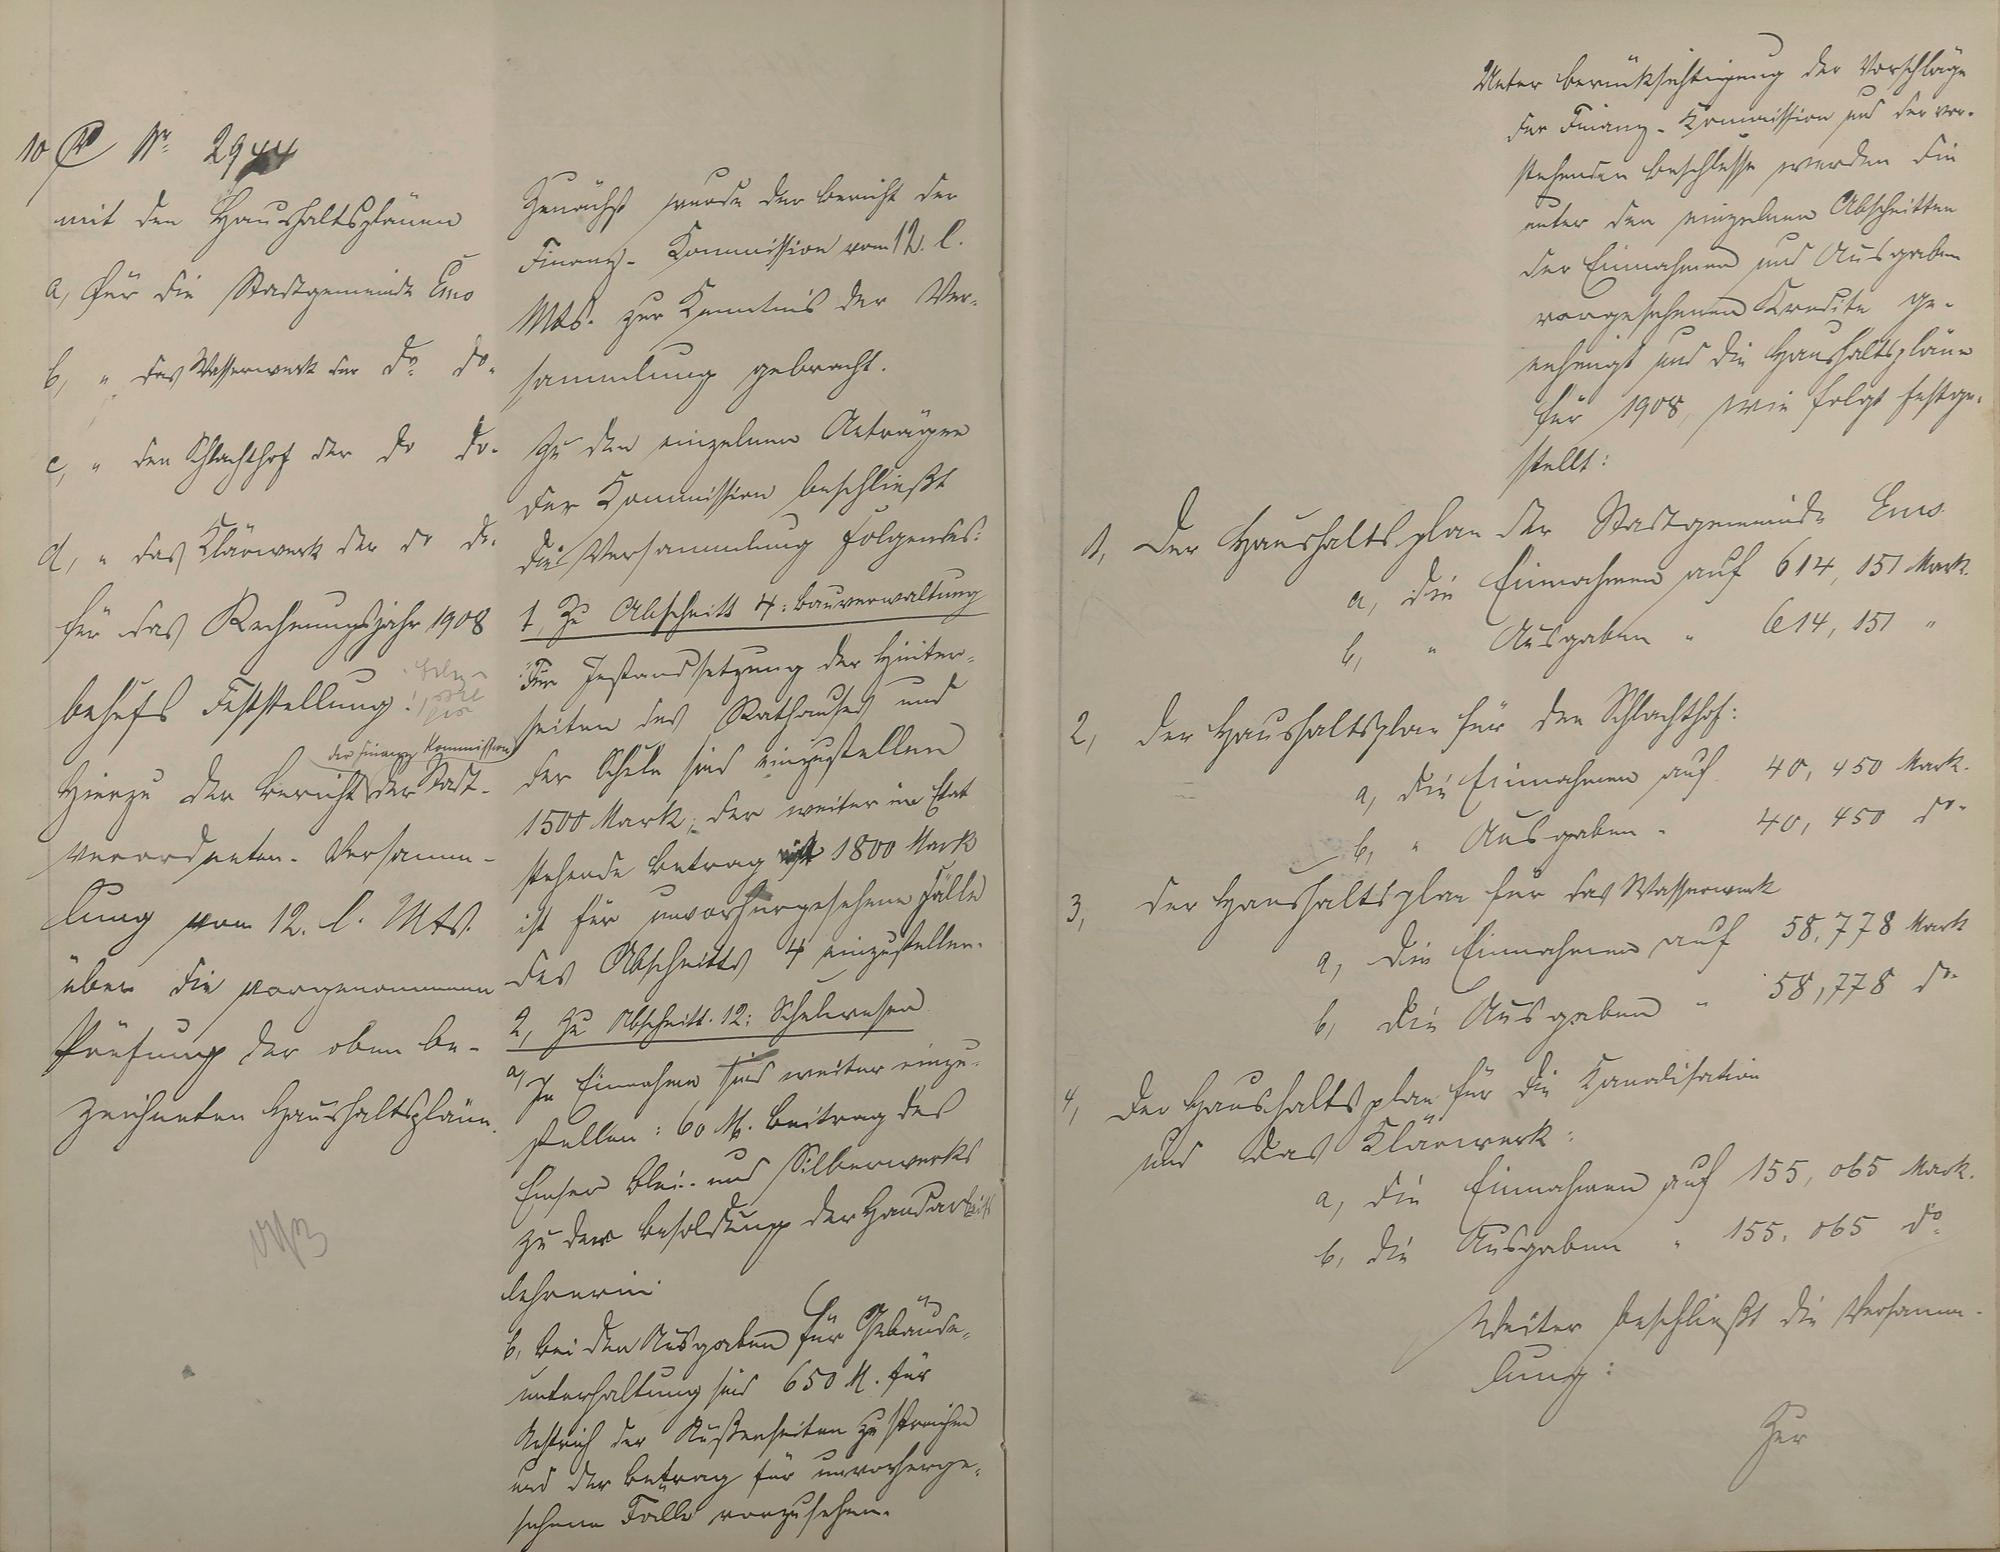 10 P Nr. 2944
mit den Haushaltsplänen
a, für die Stadtgemeinde Ems
b, " das Wasserwerk der do do.
c, " den Schlachthof der do do.
d, " das Klärwerk der do do.
für das Rechnungsjahr 1908
behufs Feststellung.
der Finanz Kommission
Hierzu der Bericht der Stadt-
verordneten-Versamm-
lung vom 12. l. Mts.
über die vorgenommene
Prüfung der oben be-
zeichneten Haushaltspläne.
Zunächst wurde der Bericht der
Finanz-Kommission vom 12. l.
Mts. zur Kenntnis der Ver-
sammlung gebracht.
Zu den einzelnen Anträgen
der Kommission beschließt
die Versammlung Folgendes:
1, Zu Abschnitt 4: Bauverwaltung
Für Instandsetzung der Hinter-
seiten des Rathauses und
der Schule sind einzustellen
1500 Mark; der weiter im Etat
stehende Betrag 1800 Mark
ist für unvorhergesehene Fälle
des Abschnitts 4 einzustellen.
2, Zu Abschnitt 12: Schulwesen
a, In Einnahme sind weiter einzu-
stellen: 60 M. Beitrag des
Emser Blei- und Silberwerks
zu der Besoldung der Handarbeits
lehrerin.
b, bei den Ausgaben für Gebäude-
unterhaltung sind 650 M. für
Anstrich der Außenseiten zu streichen
und der Betrag für unvorherge-
sehene Fälle vorzusehen.
Unter Berücksichtigung der Vorschläge
der Finanz-Kommission und der vor-
stehenden Beschlüsse werden die
unter den einzelnen Abschnitten
der Einnahmen und Ausgaben
vorgesehenen Kredite ge-
nehmigt und die Haushaltspläne
für 1908, wie folgt festge-
stellt:
1, Der Haushaltsplan der Stadtgemeinde Ems
a, die Einnahmen auf 614,151 Mark.
b, " Ausgaben " 614,151 "
2, Der Haushaltsplan für den Schlachthof:
a, die Einnahmen auf 40,450 Mark.
b, " Ausgaben " 40,450 do.
3, Der Haushaltsplan für das Wasserwerk
a, die Einnahmen auf 58,778 Mark
b, die Ausgaben " 58,778 do.
4, Der Haushaltsplan für die Kanalisation
und das Klärwerk:
a, die Einnahmen auf 155,065 Mark.
b, die Ausgaben " 155,065 do.
Weiter beschließt die Versamm-
lung:
Zur